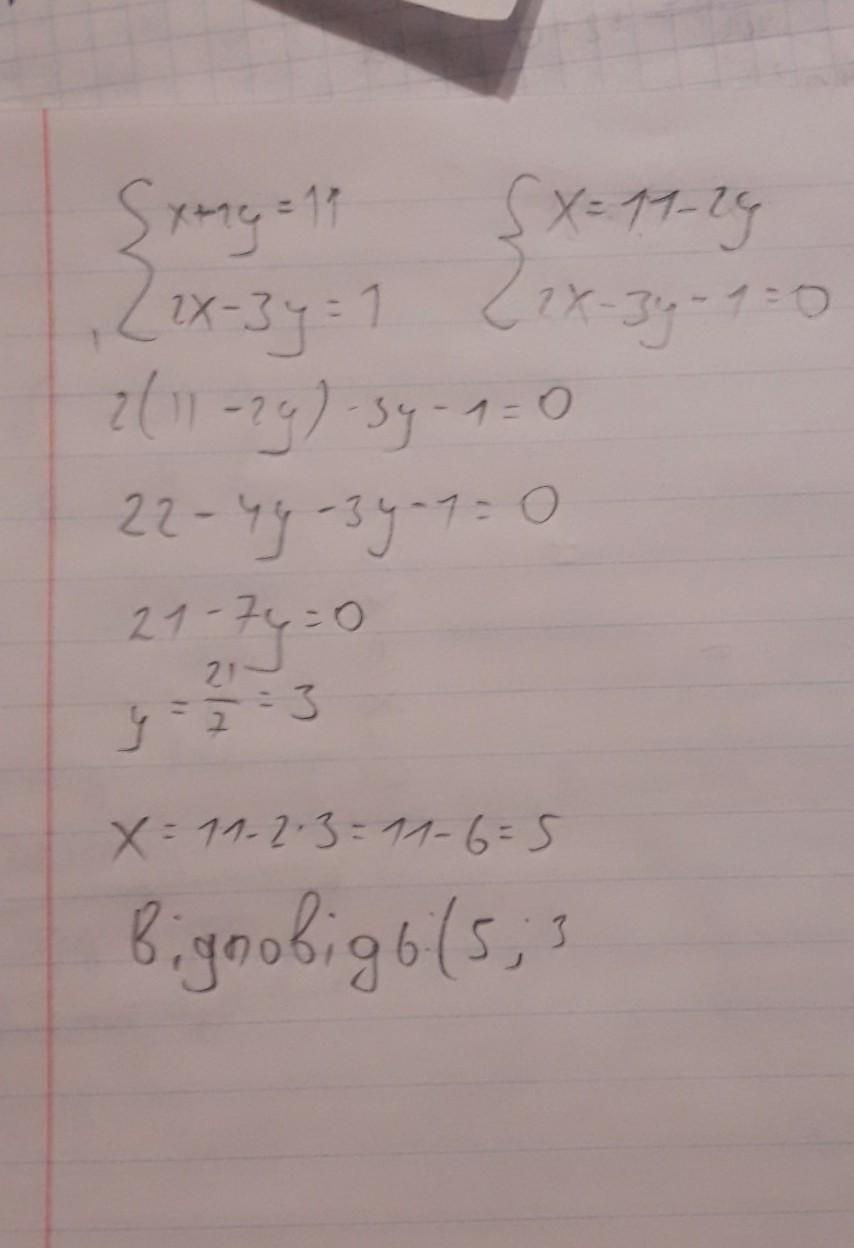 {x+1y=11 {x=11-2y
{2x-3y=1 {2x-3y-1=0
2(11-2y)-3y-1=0
22-4y-3y-1=0
21-7y=0
y=21/7=3
x=11-2·3=11-6=5
Відповідь:(5;3